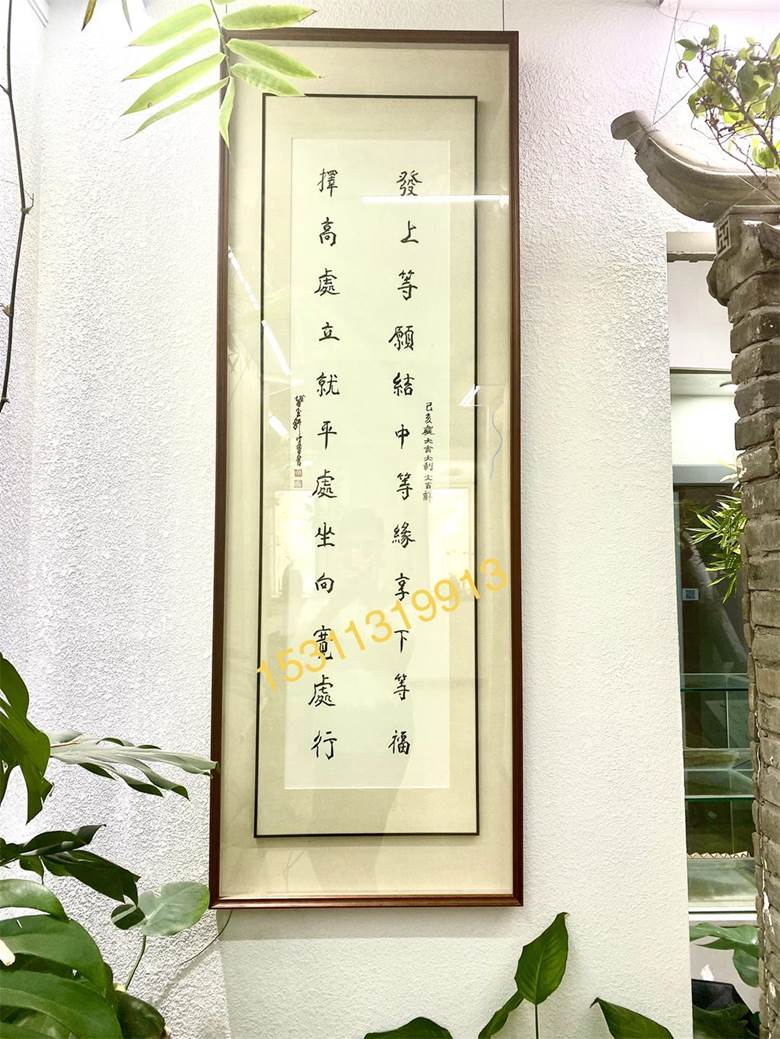 發上等願結中等緣享下等福
擇高處立就平處坐向寬處行
15311319913